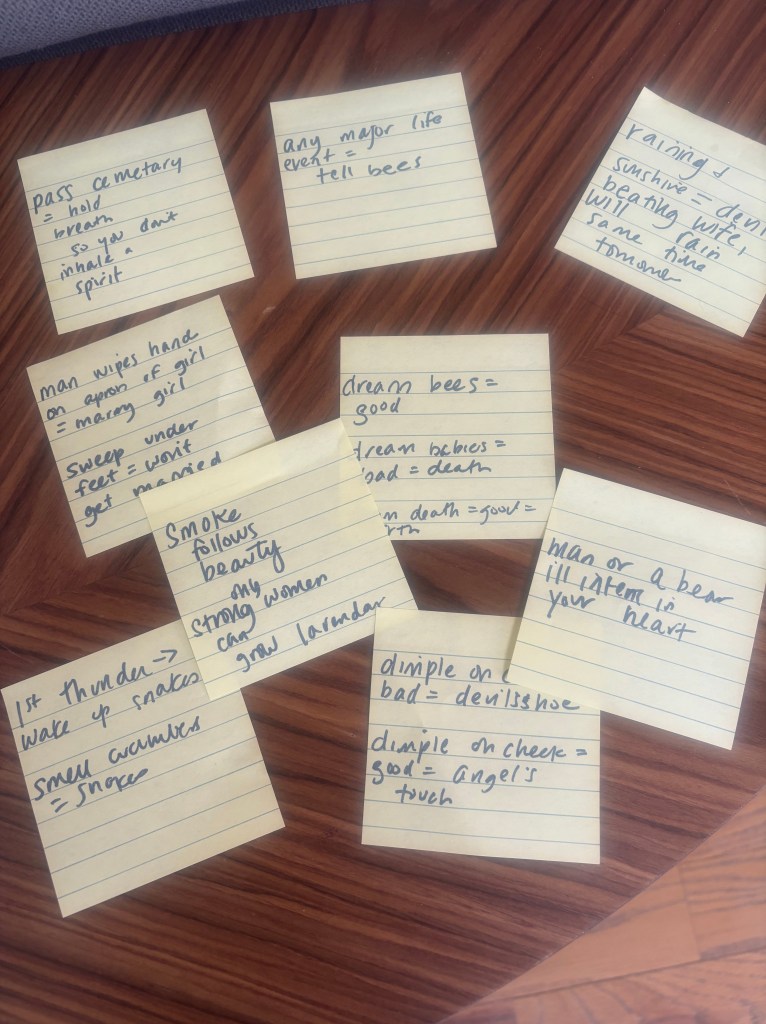 pass cemetary
= hold
breath
so you don't
inhale a
spirit
any major life
event =
tell bees
raining &
sunshine = devil
beating wife,
will rain
same time
tomorrow
man wipes hand
on apron of girl
= marry girl
sweep under
feet = won't
get married
dream bees =
good
dream babies =
bad = death
death = good =
Smoke
follows
beauty
only
strong women
can
grow lavendar
man or a bear
ill intent in
your heart
1st thunder →
wake up snakes
smell cucumbers
= snakes
dimple on
bad = devils shoe
dimple on cheek =
good = angel's
touch